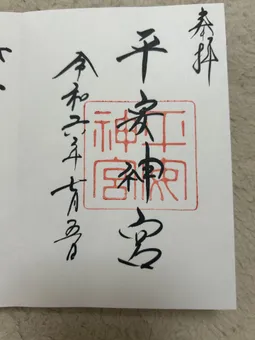 奉拝
平安神宮
平安神宮
令和六年十月五日